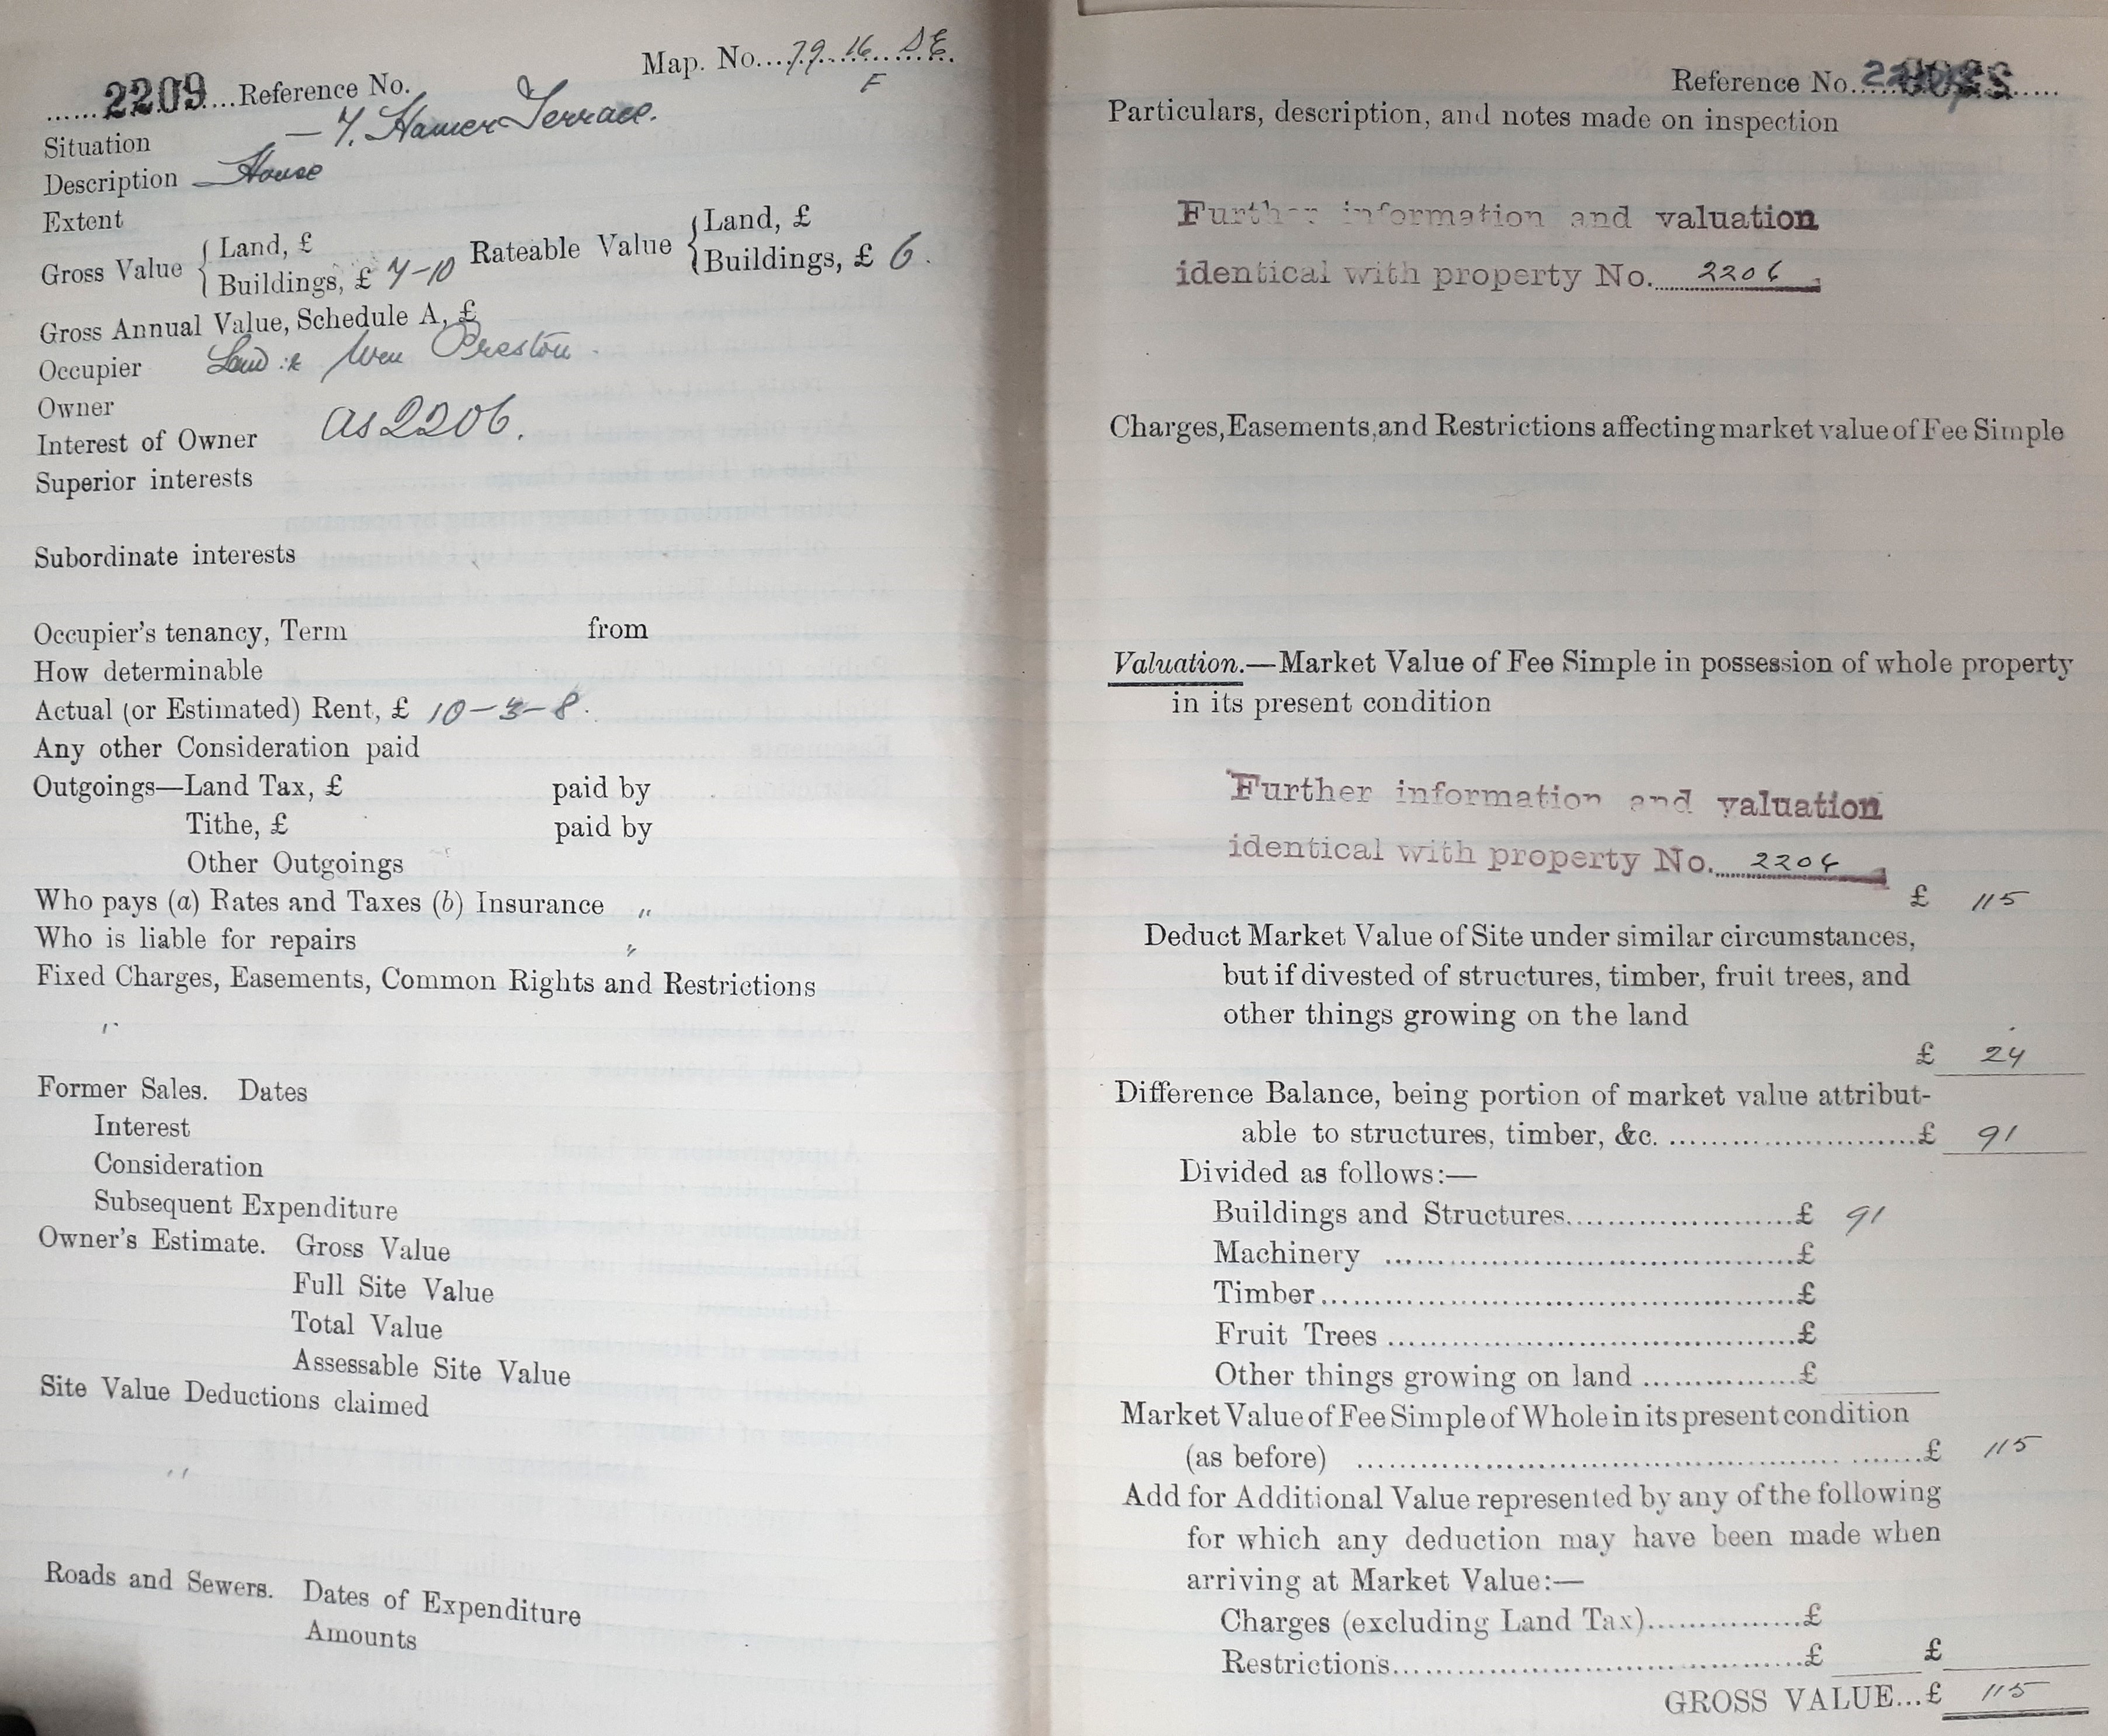 Map. No. 79. 16. SE.
F
2209 Reference No.
Situation — 7. Hamer Terrace.
Description — House
Extent
Gross Value { Land, £
Buildings, £ 7-10
Rateable Value { Land, £
Buildings, £ 6.
Gross Annual Value, Schedule A, £
Occupier Wm Preston.
Owner
Interest of Owner as 2206.
Superior interests
Subordinate interests
Occupier's tenancy, Term from
How determinable
Actual (or Estimated) Rent, £ 10-3-8.
Any other Consideration paid
Outgoings—Land Tax, £ paid by
Tithe, £ paid by
Other Outgoings
Who pays (a) Rates and Taxes (b) Insurance "
Who is liable for repairs "
Fixed Charges, Easements, Common Rights and Restrictions
"
Former Sales. Dates
Interest
Consideration
Subsequent Expenditure
Owner's Estimate. Gross Value
Full Site Value
Total Value
Assessable Site Value
Site Value Deductions claimed
"
Roads and Sewers. Dates of Expenditure
Amounts
Reference No.
Particulars, description, and notes made on inspection
Further information and valuation
identical with property No. 2206
Charges, Easements, and Restrictions affecting market value of Fee Simple
Valuation.—Market Value of Fee Simple in possession of whole property
in its present condition
Further information and valuation
identical with property No. 2206
£ 115
Deduct Market Value of Site under similar circumstances,
but if divested of structures, timber, fruit trees, and
other things growing on the land
£ 24
Difference Balance, being portion of market value attribut-
able to structures, timber, &c. £ 91
Divided as follows:—
Buildings and Structures £ 91
Machinery £
Timber £
Fruit Trees £
Other things growing on land £
Market Value of Fee Simple of Whole in its present condition
(as before) £ 115
Add for Additional Value represented by any of the following
for which any deduction may have been made when
arriving at Market Value:—
Charges (excluding Land Tax) £
Restrictions £ £
GROSS VALUE...£ 115